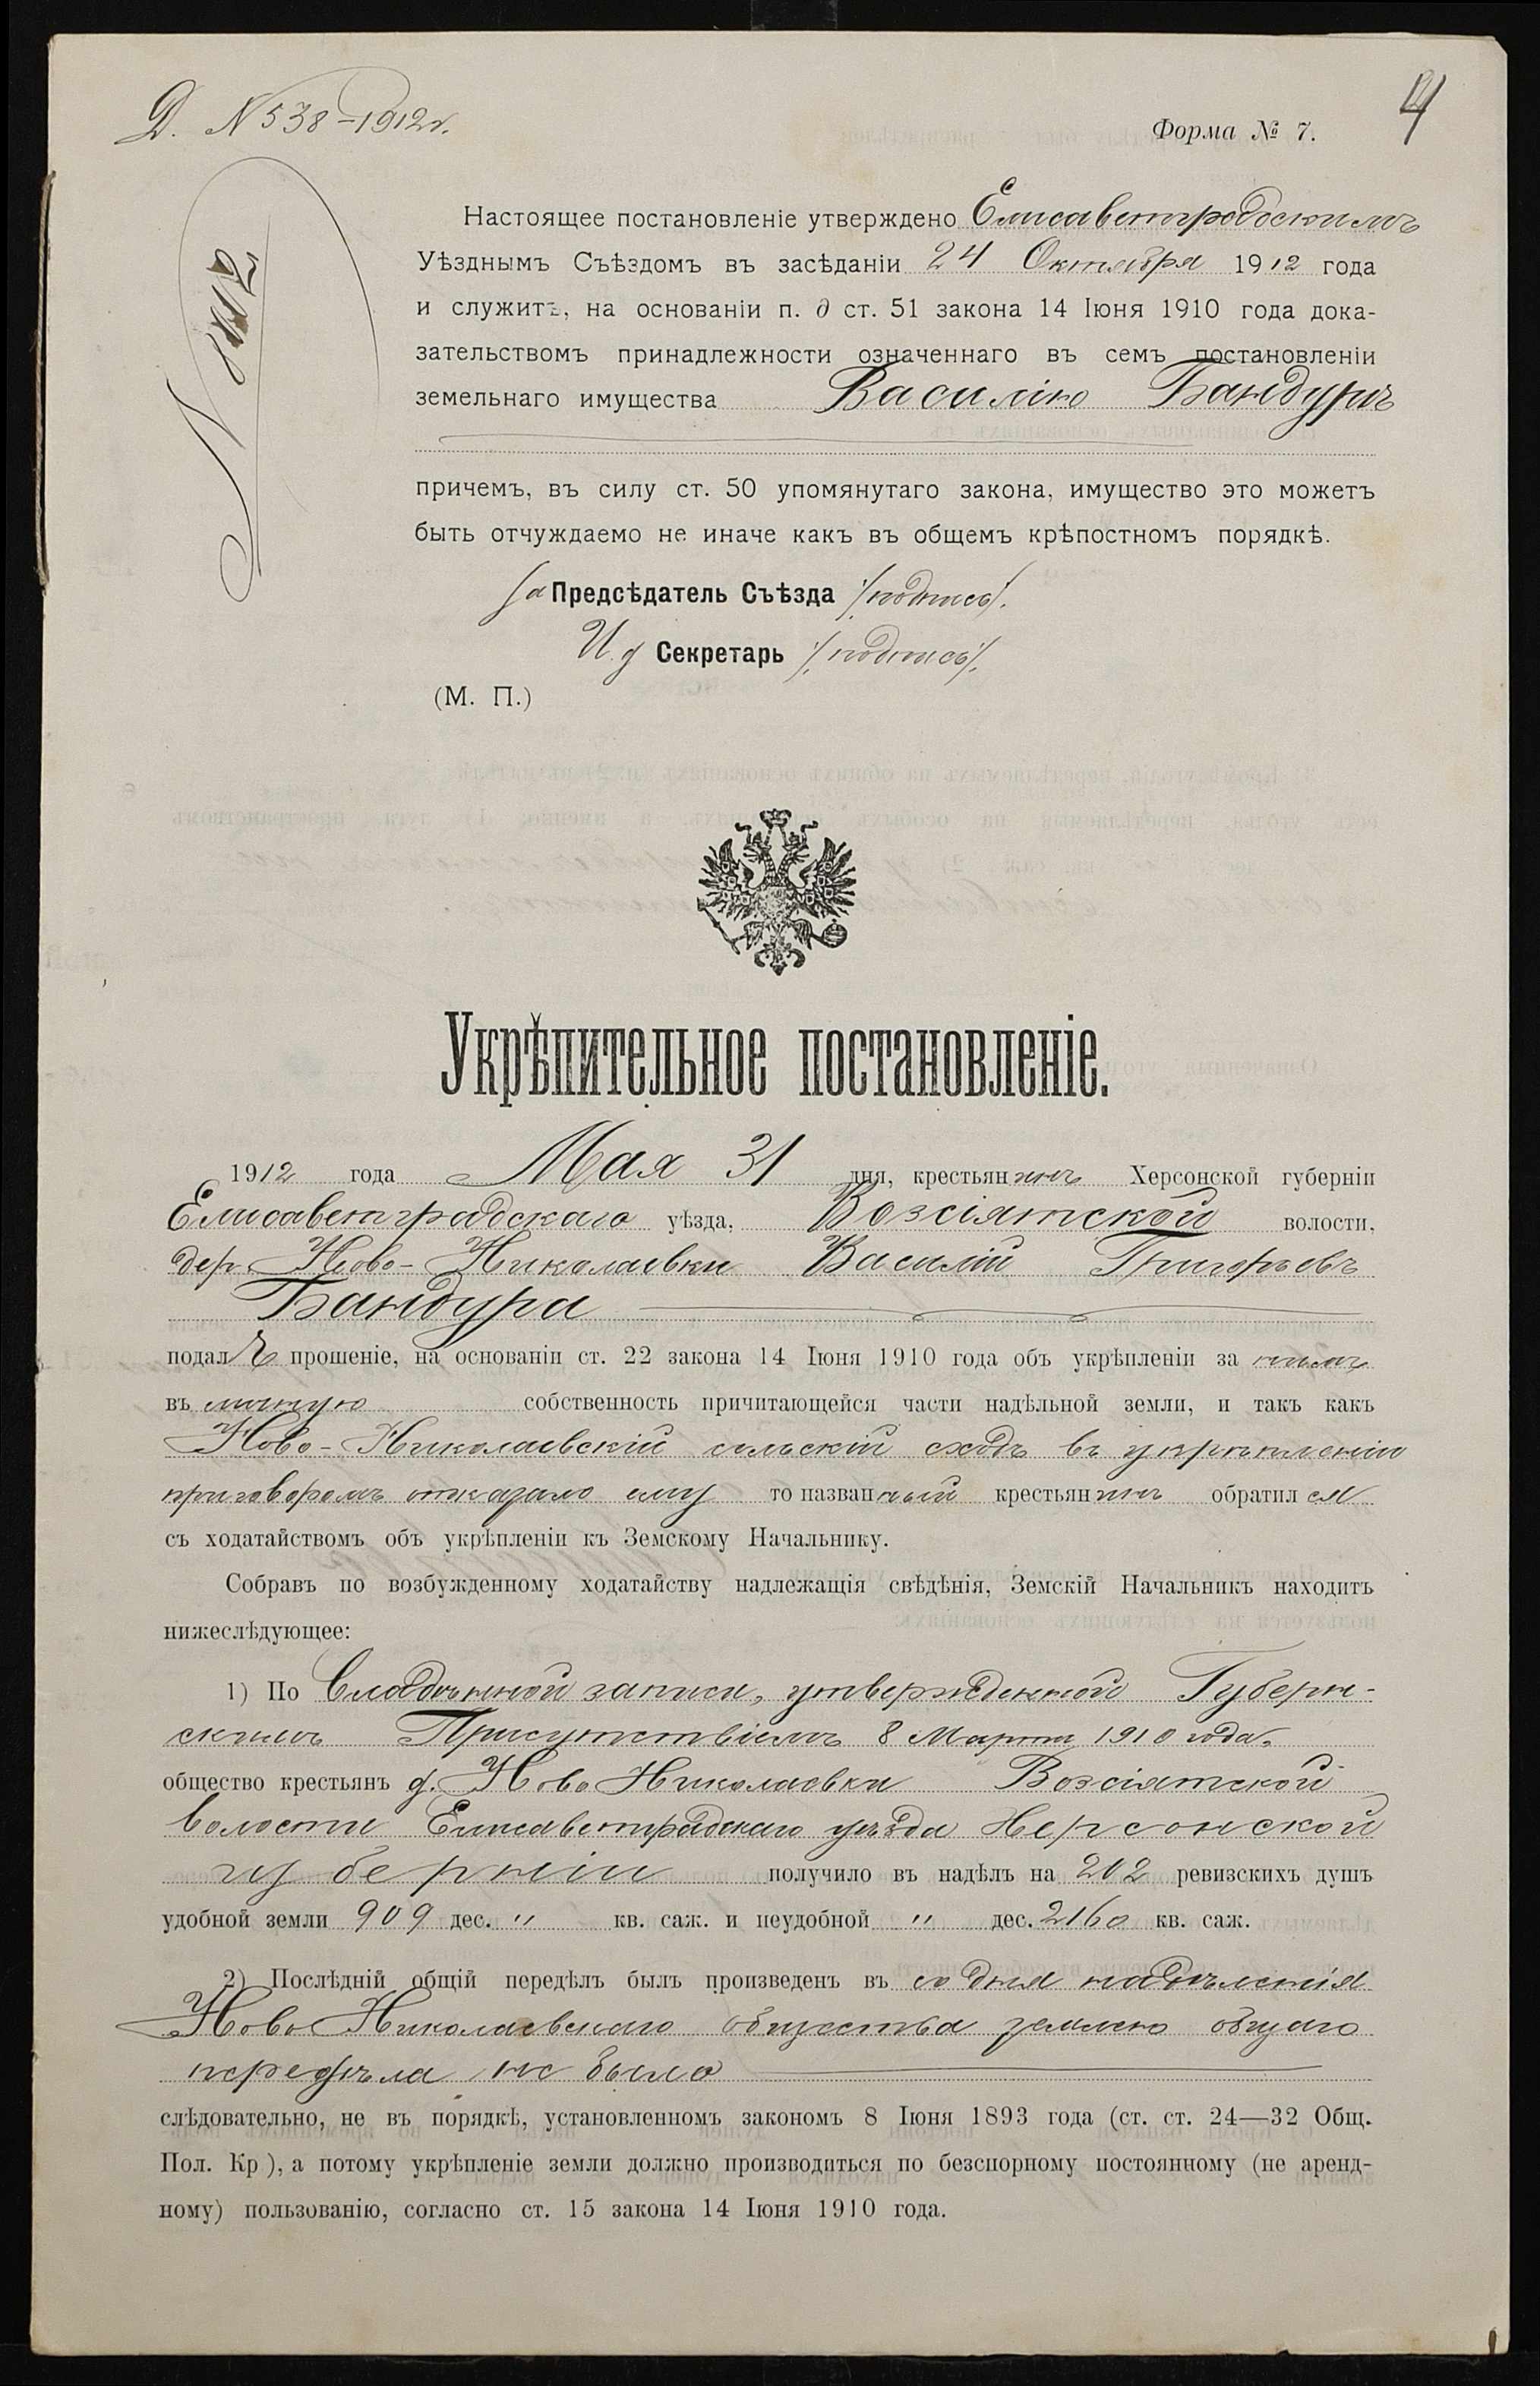 Д. N 538-1912 г.
4
Форма № 7.
N
Настоящее постановленіе утверждено Елисаветградскимъ
Уѣзднымъ Съѣздомъ въ засѣданіи 24 Октября 1912 года
и служитъ, на основаніи п. д ст. 51 закона 14 Іюня 1910 года дока-
зательствомъ принадлежности означеннаго въ семъ постановленіи
земельнаго имущества Василію Бандурѣ
причемъ, въ силу ст. 50 упомянутаго закона, имущество это можетъ
быть отчуждаемо не иначе какъ въ общемъ крѣпостномъ порядкѣ.
За Предсѣдатель Съѣзда /подпись/.
И д Секретарь /подпись/.
(М. П.)
Укрѣпительное постановленіе.
1912 года Мая 31 дня, крестьянинъ Херсонской губерніи
Елисаветградскаго уѣзда, Возсіятской волости,
дер. Ново-Николаевки Василій Григорьевъ
Бандура
подалъ прошеніе, на основаніи ст. 22 закона 14 Іюня 1910 года объ укрѣпленіи за нимъ
въ личную собственность причитающейся части надѣльной земли, и такъ какъ
Ново-Николаевскій сельскій сходъ въ укрѣпленіи
приговоромъ отказало ему то названный крестьянинъ обратился
съ ходатайствомъ объ укрѣпленіи къ Земскому Начальнику.
Собравъ по возбужденному ходатайству надлежащія свѣдѣнія, Земскій Начальникъ находитъ
нижеслѣдующее:
1) По Владѣнной записи, утвержденной Губерн-
скимъ Присутствіемъ 8 Марта 1910 года,
общество крестьянъ д. Ново Николаевки Возсіятской
волости Елисаветградскаго уѣзда Херсонской
губерніи получило въ надѣлъ на 202 ревизскихъ душъ
удобной земли 909 дес. " кв. саж. и неудобной " дес. 2160 кв. саж.
2) Послѣдній общій передѣлъ былъ произведенъ въ со дня надѣленія
Ново Николаевскаго общества землею общаго
передѣла не было
слѣдовательно, не въ порядкѣ, установленномъ закономъ 8 Іюня 1893 года (ст. ст. 24—32 Общ.
Пол. Кр ), а потому укрѣпленіе земли должно производиться по безспорному постоянному (не аренд-
ному) пользованію, согласно ст. 15 закона 14 Іюня 1910 года.